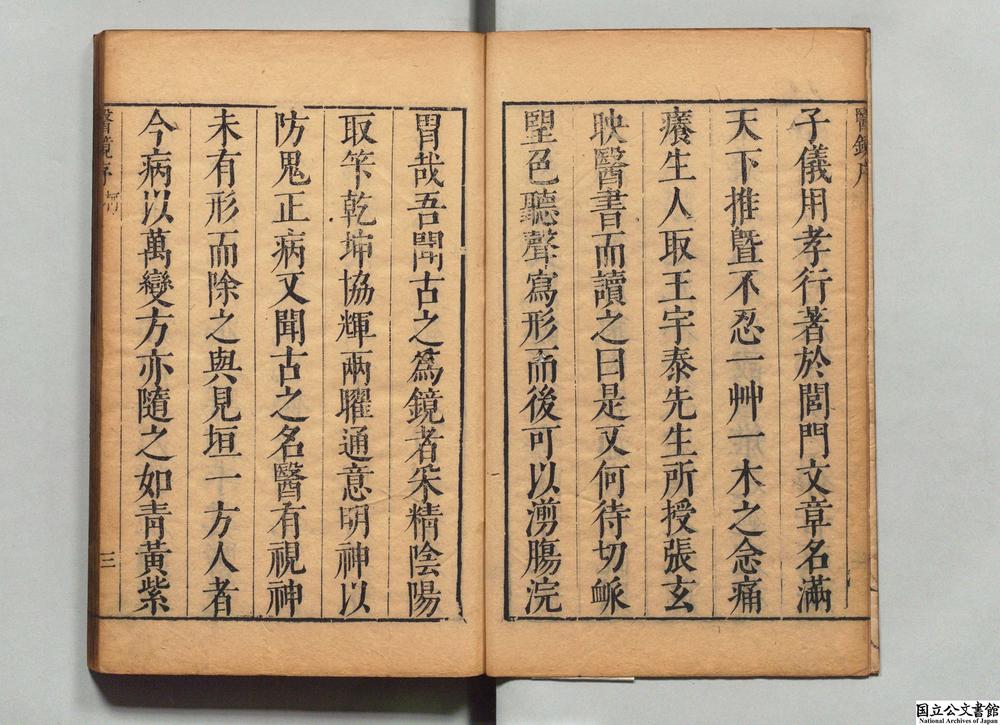 醫鏡序
子儀用孝行著於閭門文章名滿
天下推曁不忍一艸一木之念痛
癢生人取王宇泰先生所授張玄
映醫書而讀之曰是又何待切脈
望色聽聲寫形而後可以湔腸浣
胃哉吾聞古之爲鏡者采精陰陽
取笇乾坤協輝兩曜通意明神以
防鬼正病又聞古之名醫有視神
未有形而除之與見垣一方人者
今病以萬變方亦隨之如靑黃紫
醫鏡序
三
国立公文書館
National Archives of Japan